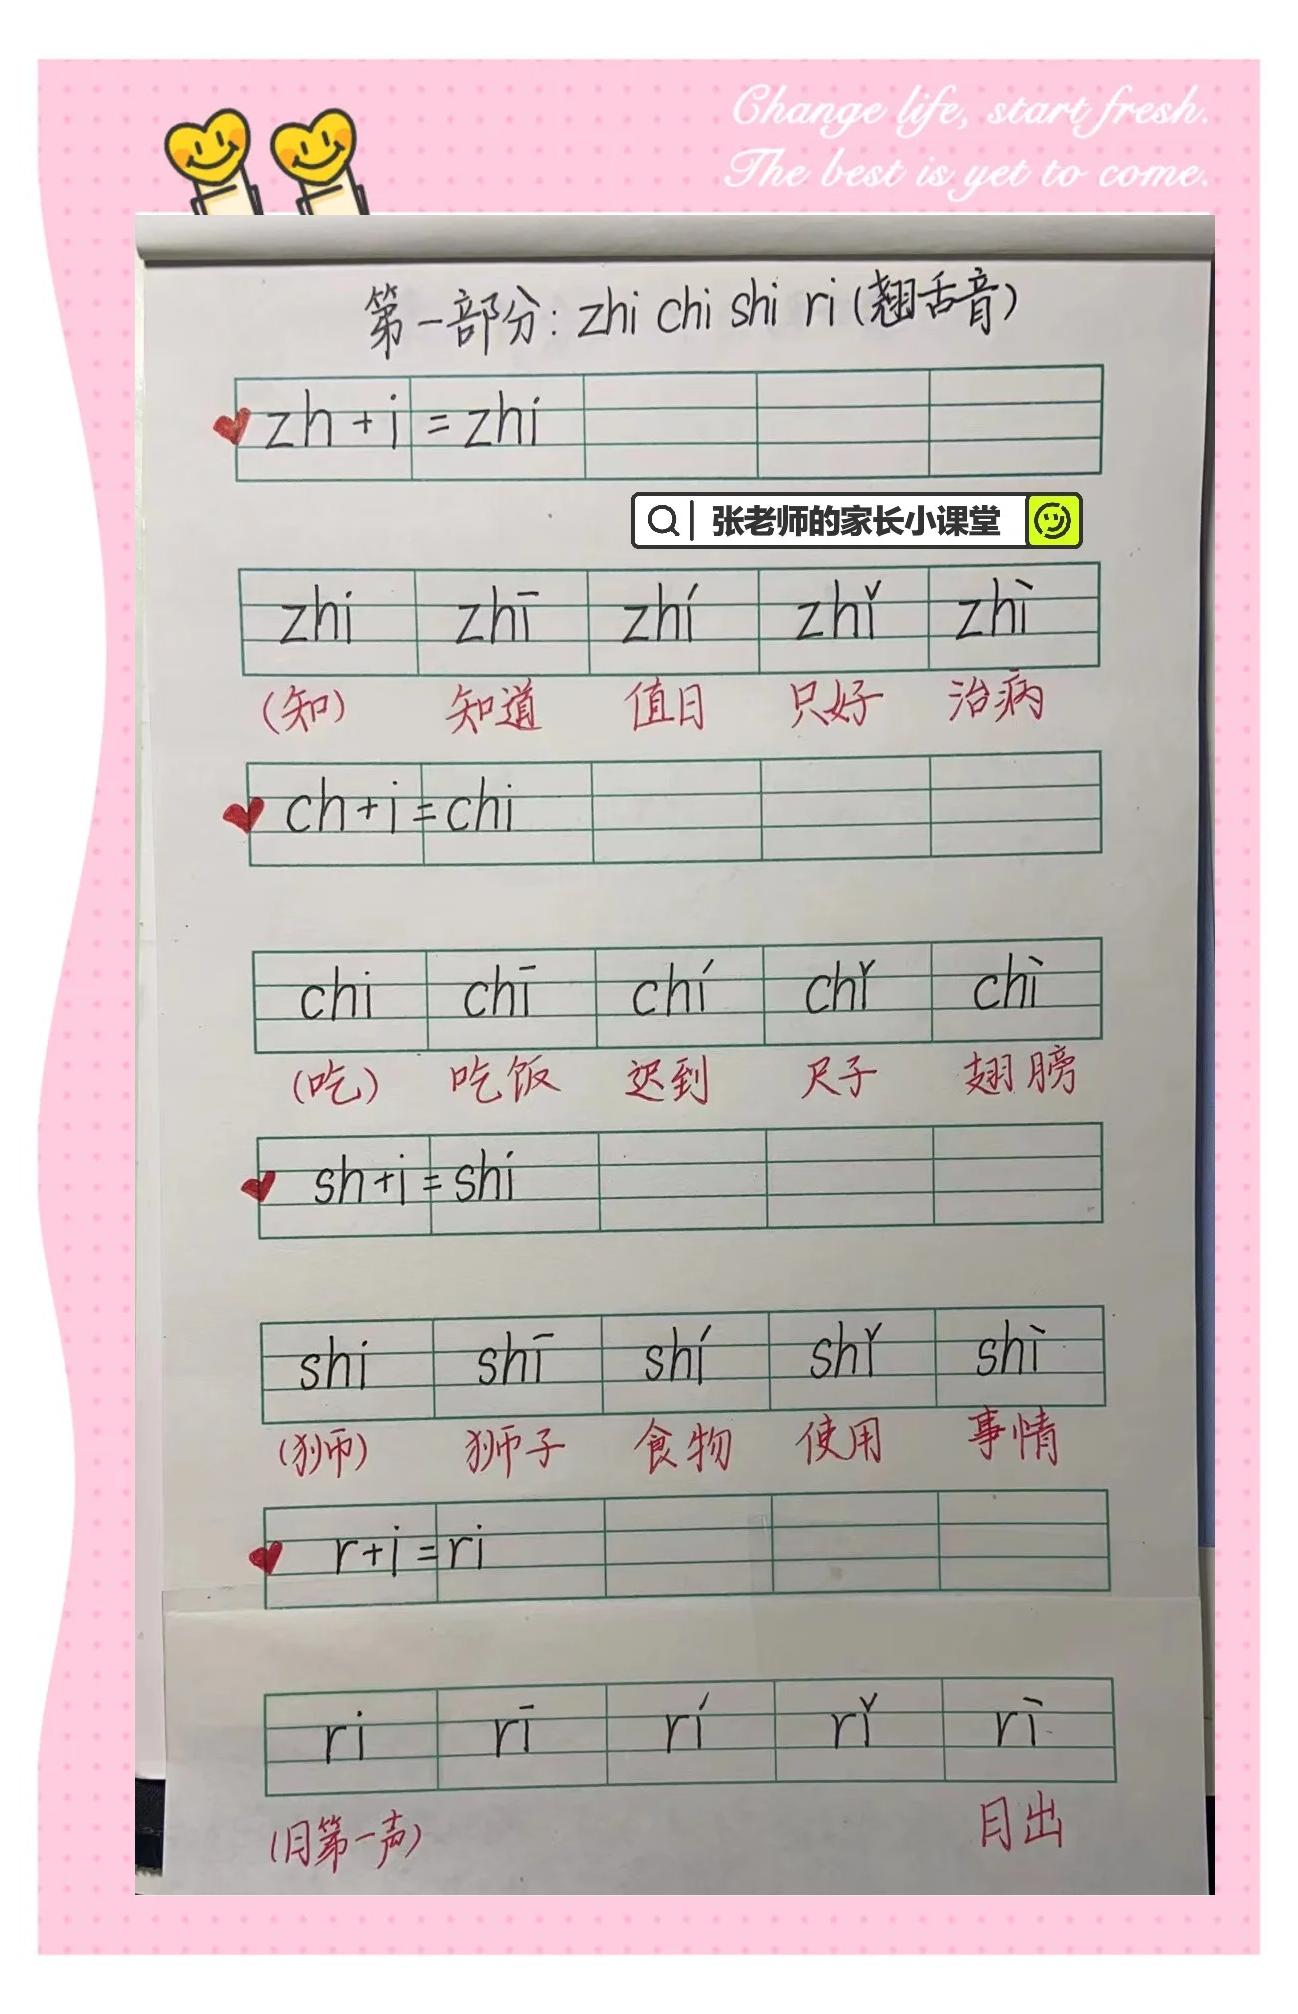 Change life, start fresh.
The best is yet to come.
第一部分: zhi chi shi ri (翘舌音)
zh + i = zhi
张老师的家长小课堂
zhi zhī zhí zhǐ zhì
(知) 知道 值日 只好 治病
ch + i = chi
chi chī chí chǐ chì
(吃) 吃饭 迟到 尺子 翅膀
sh + i = shi
shi shī shí shǐ shì
(狮) 狮子 食物 使用 事情
r + i = ri
ri rī rí rǐ rì
(日第一声) 日出